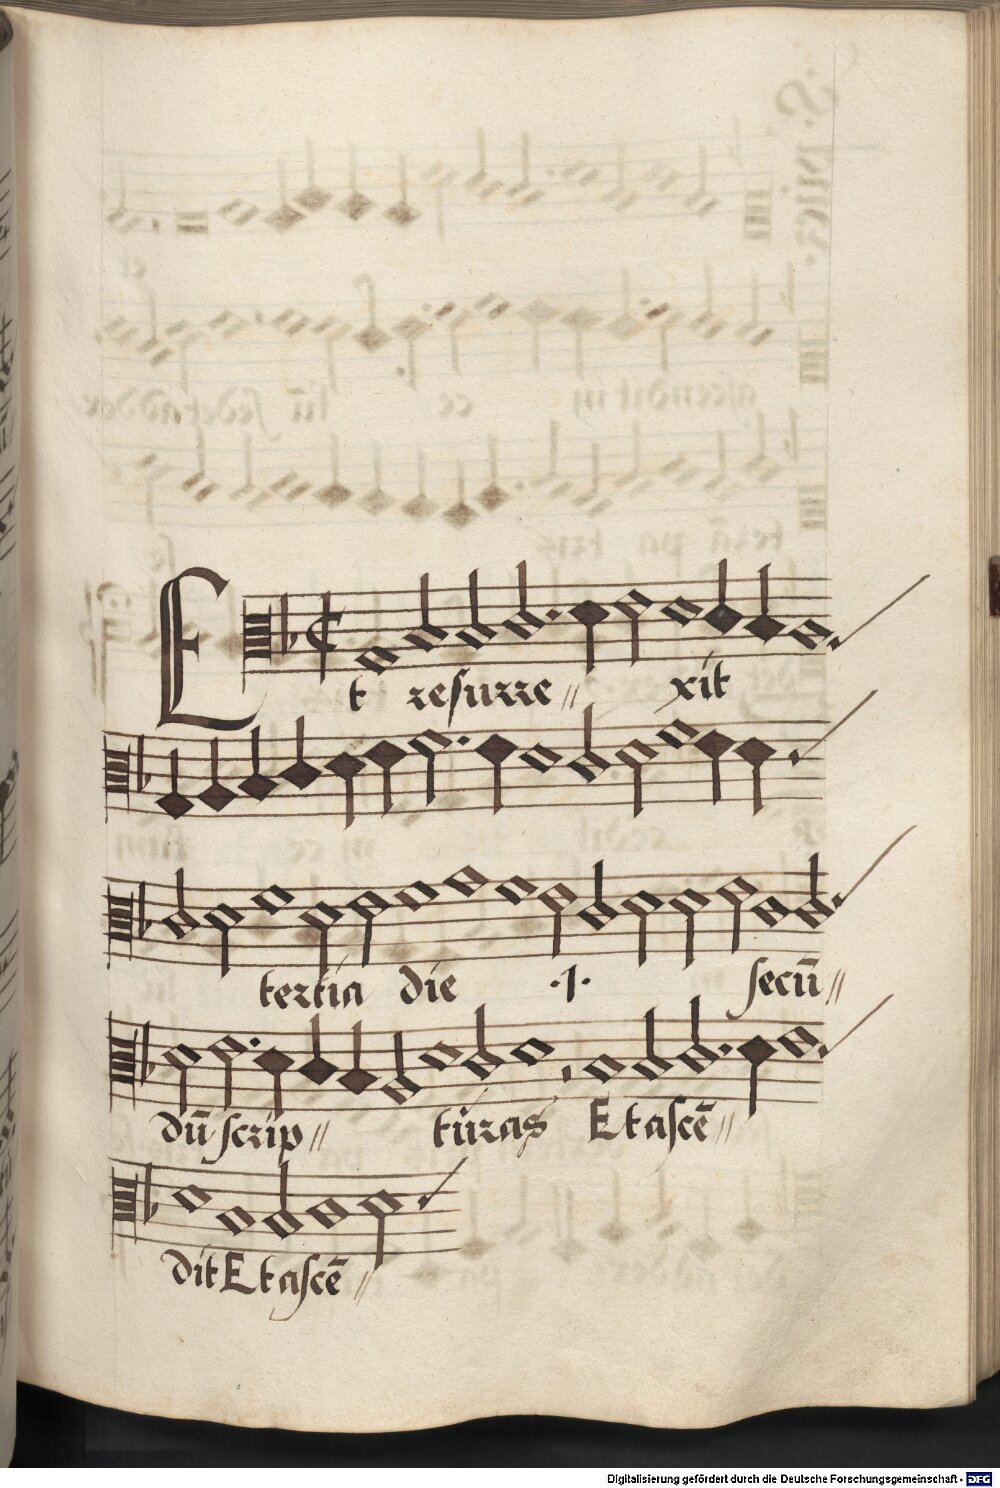 Et resurre〃 xit
tertia die .1. secū〃
dū scrip〃 turas Et ascē〃
dit Et ascē〃
Digitalisierung gefördert durch die Deutsche Forschungsgemeinschaft - DFG